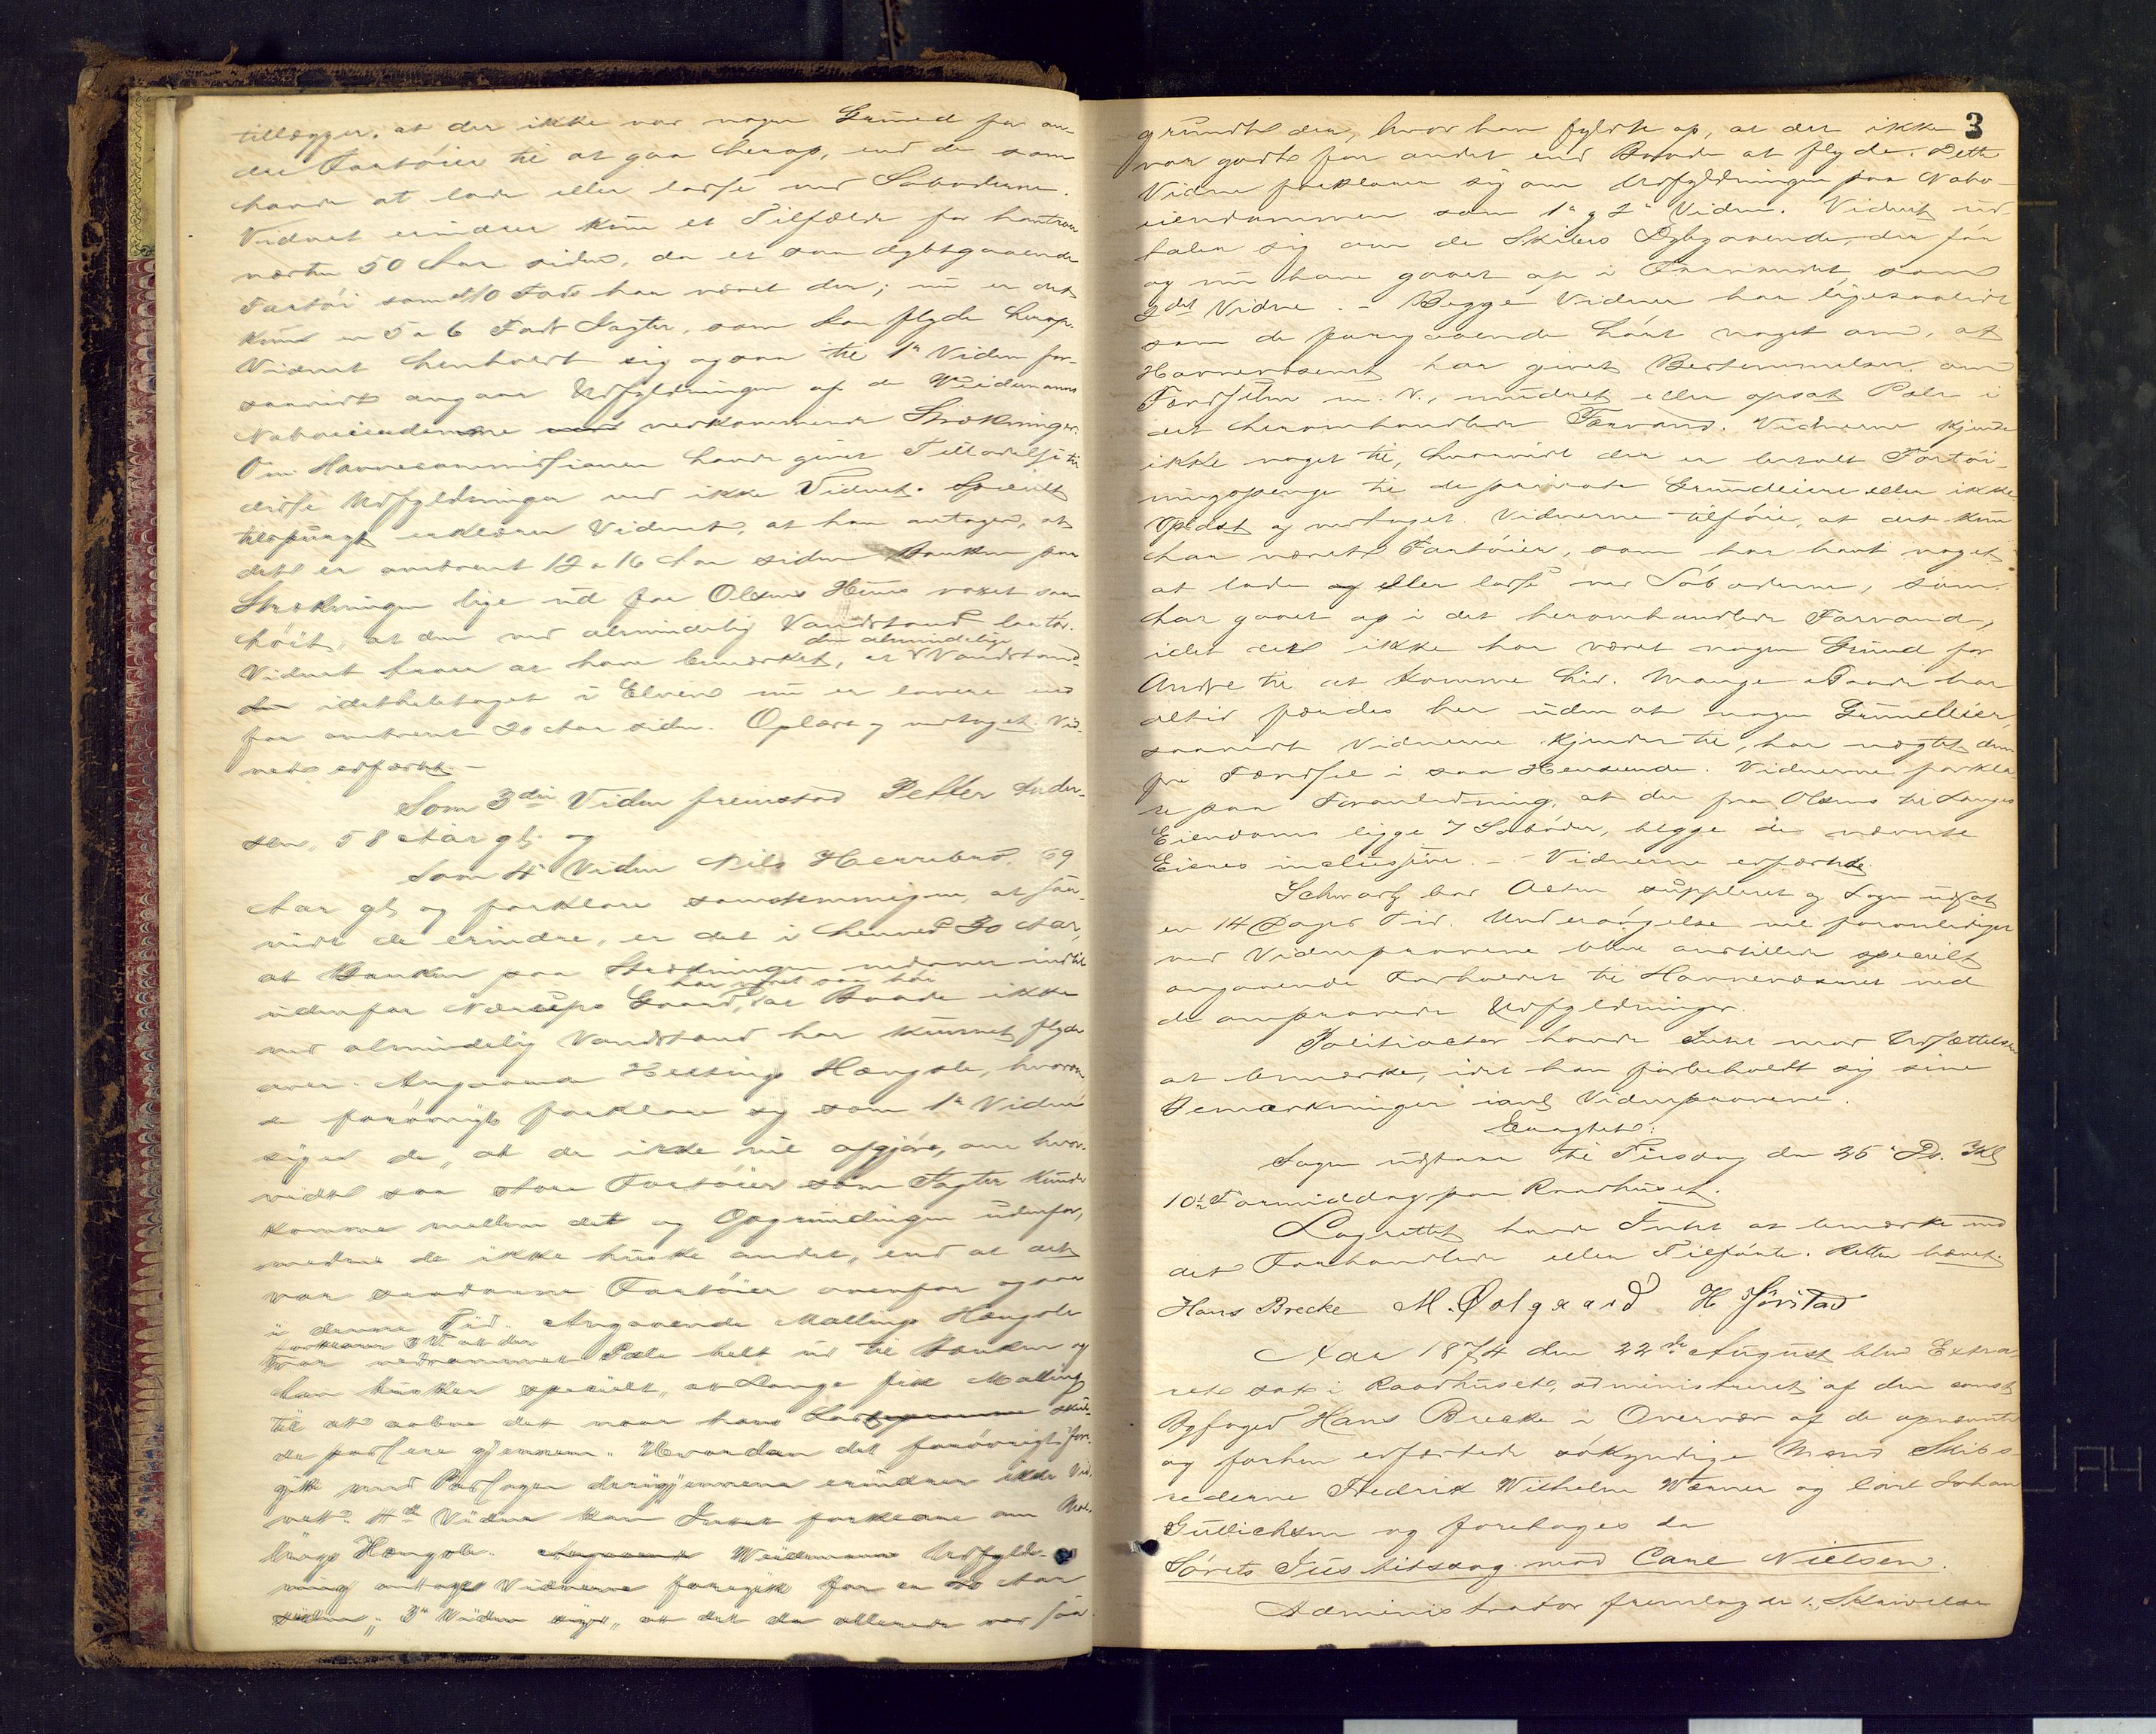 tillægger, at der ikke var nogen Grund for an-
dre Fartöier til at gaa herop, end de som
havde at lade eller losse ved Söboderne.
Vidnet erindrer kun et Tilfælde for henimod
næsten 50 Aar siden, da et saa dybtgaaende
Fartöi som 10 Fods har været der; nu er det
kun en 5 a 6 Fods Jagter, som kan flyde herop.
Vidnet henholdt sig ogsaa til 1ste Vidne for-
saavidt angaar Udfyldningen af de Weidemanns
Naboeiendomme vedkommende Strækninger.
Om Havnecommissionen havde givet Tilladelse til
disse Udfyldninger ved ikke Vidnet. Specielt
tilspurgt erklærer Vidnet, at han antager, at
det er omtrent 12 a 16 Aar siden Banken paa
Strækningen lige ud for Olsens Huus voxet saa
höit, at den ved almindelig Vandstand laa tör.
Vidnet troer at have bemærket, at den almindelige Vandstand
idetheletaget i Elven nu er lavere end
for omtrent 20 Aar siden. Oplæst og vedtaget. Vid-
net aftraadt.
Som 3die Vidne fremstod Petter Ander-
sen, 58 Aar gl. og
Som 4de Vidne Nils Herrebrö, 69
Aar gl. og forklare samstemmigen, at saa-
vidt de erindre, er det i henved 30 Aar,
at Banken paa Strækningen nedover indtil
udenfor Nærups Gaard, har været saa höi at Baade ikke
ved almindelig Vandstand har kunnet flyde
over. Angaaende Heftings Hængsle, hvorom
de forövrigt forklare sig som 1ste Vidne
siger de, at de ikke vil afgjöre, om hvor-
vidt saa store Fartöier som Jagter kunde
komme mellem det og Opgrundingen udenfor,
medens de ikke huske andet, end at det
var saadanne Fartöier ovenfor ogsaa
i denne Tid. Angaaende Mallings Hængsle
forklarer 3 V. at der
var nedrammet Pæle helt ud til Banken og
han husker specielt, at Lange fik Malling
til at aabne det naar hans skul-
de passere gjennem. Hvordan det forövrigt fore-
gik med Passagen derigjennem erindrer ikke Vid-
net. 4de Vidne kan Intet forklare om Mal-
lings Hængsle. Weidemanns Udfyld-
ning antager Vidnerne foregik for en 20 Aar
siden, 3die Vidne siger, at det da allerede var saa
3
grundt der, hvor han fyldte op, at der ikke
var godt for andet end Baade at flyde. Dette
Vidne forklarer sig om Udfyldningen paa Nabo-
eiendommen som 1ste og 2det Vidne. Vidnet ud-
taler sig om de Skibes Dybgaaende, der för
og nu have gaaet op i Farvandet, som
2det Vidne. - Begge Vidner har ligesaalidt
som de foregaaende hört noget om, at
Havnevæsenet har givet Bestemmelser om
Færdselen m. v., mudret eller opsat Pæle i
det heromhandlede Farvand. Vidnerne kjende
ikke noget til, hvorvidt der er betalt Fortöi-
ningspenge til de private Grundeiere eller ikke.
Oplæst og vedtaget. Vidnerne tilföie, at det kun
har været Fartöier, som har havt noget
at lade eller losse ved Söboderne, som
har gaaet op i det heromhandlede Farvand,
idet der ikke har været nogen Grund for
Andre til at komme hid. Mange Baade har
altid færdes her uden at nogen Grundeier,
saavidt Vidnerne kjender til, har nægtet dem
fri Færdsel i saa Henseende. Vidnerne forkla-
re paa Foranledning, at der fra Olsens til Langes
Eiendoms ligge 7 Söboder, begge de nævnte
Eieres inclusive. - Vidnerne aftraadte.
Schwartz bad Acten suppleret og Sagen udsat
en 14 Dages Tid. Undersögelse vil foranlediges
ved Vidnepröverne blive anstillede specielt
angaaende Forholdet til Havnevæsenet ved
de ompröve Udfyldninger.
Politiactor havde Intet mod Udsættelsen
at bemærke, idet han forbeholdt sig sine
Bemærkninger ianl. Vidnepröverne.
Eragtet:
Sagen udsættes til Tirsdag den 25de Ds. Kl
10 Formiddag paa Raadhuset.
Lagrettet havde Intet at bemærke ved
det Forhandlede eller Tilförte. Retten hævet.
Hans Brecke M. Ødegaard H. Jörstad
Aar 1874 den 22de August blev Extra-
ret sat i Raadhuset, administreret af den const.
Byfoged Hans Brecke i Overvær af de opnævnte
og forhen edfæstede sökyndige Mænd Skibs-
rederne Fredrik Wilhelm Werner og Carl Johan
Gullichsen og foretoges da
Sörets Justitssag mod Carl Nielsen.
Administrator fremlagde 1, Skrivelse